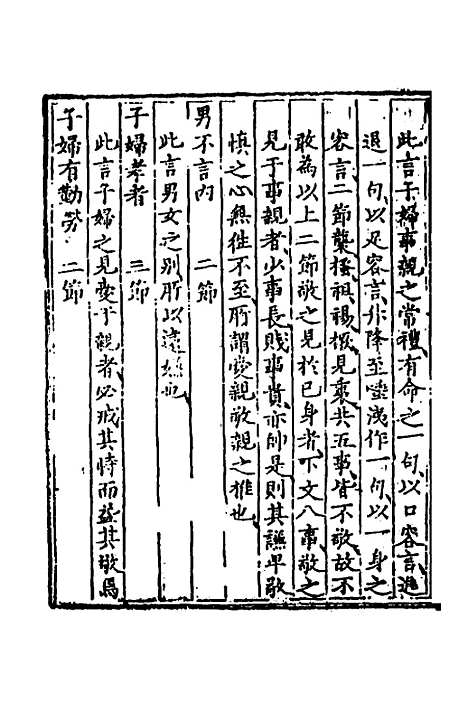 此言子婦事親之常禮有命之一句以口容言進
退一句以足容言升降至唾洟作一句以一身之
容言二節襲㨙袒裼撅見裏共五事皆不敬故不
敢為以上二節敬之見於已身者下文八事敬之
見于事親者少事長賤事貴亦帥是則其謙卑敬
慎之心無徃不至所謂愛親敬親之推也
男不言內　二節
此言男女之別所以遠嫌也
子婦孝者　三節
此言子婦之見愛于親者必戒其恃而益其敬焉
子婦有勤勞　二節